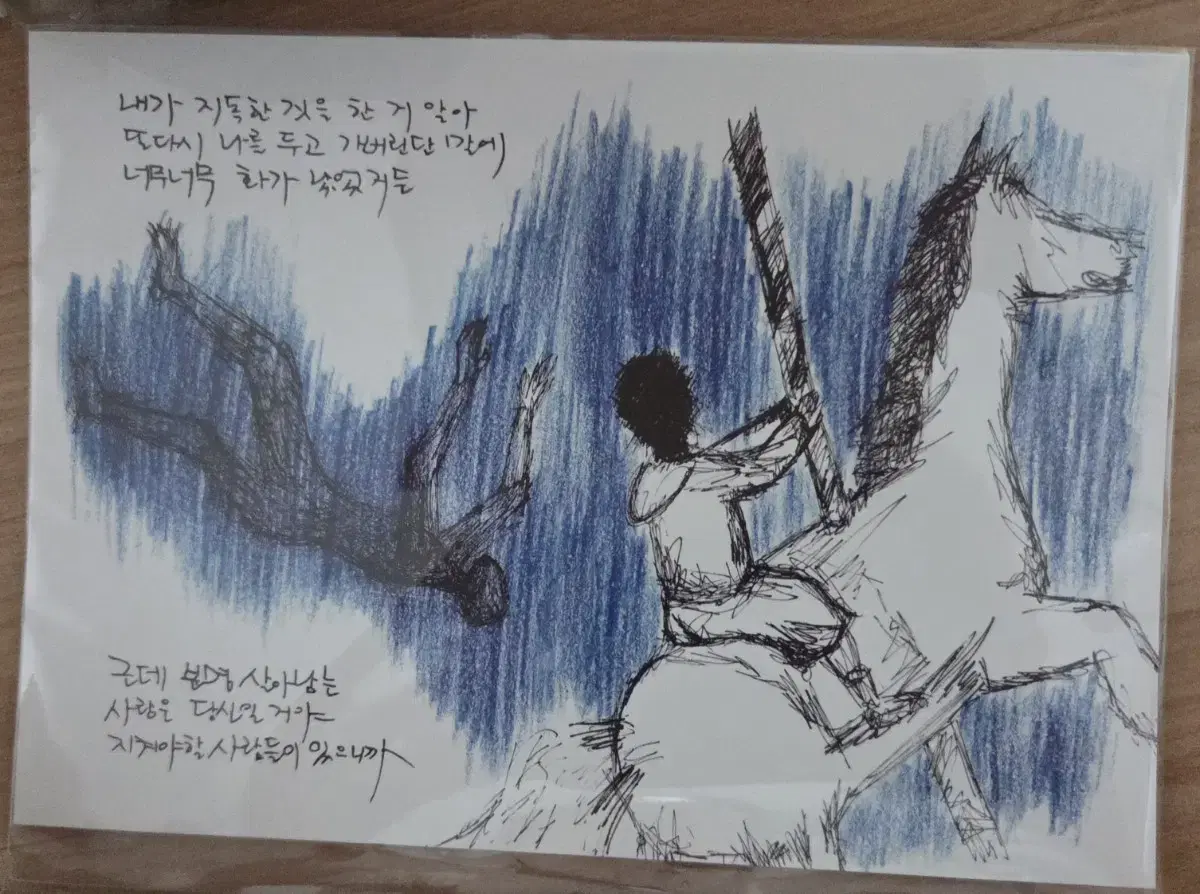 내가 지독한 것을 한 거 알아
또다시 나를 두고 가버린단 생각에
너무너무 화가 났었거든
근데 분명 살아남는
사람은 당신일 거야
지켜야할 사람들이 있으니까